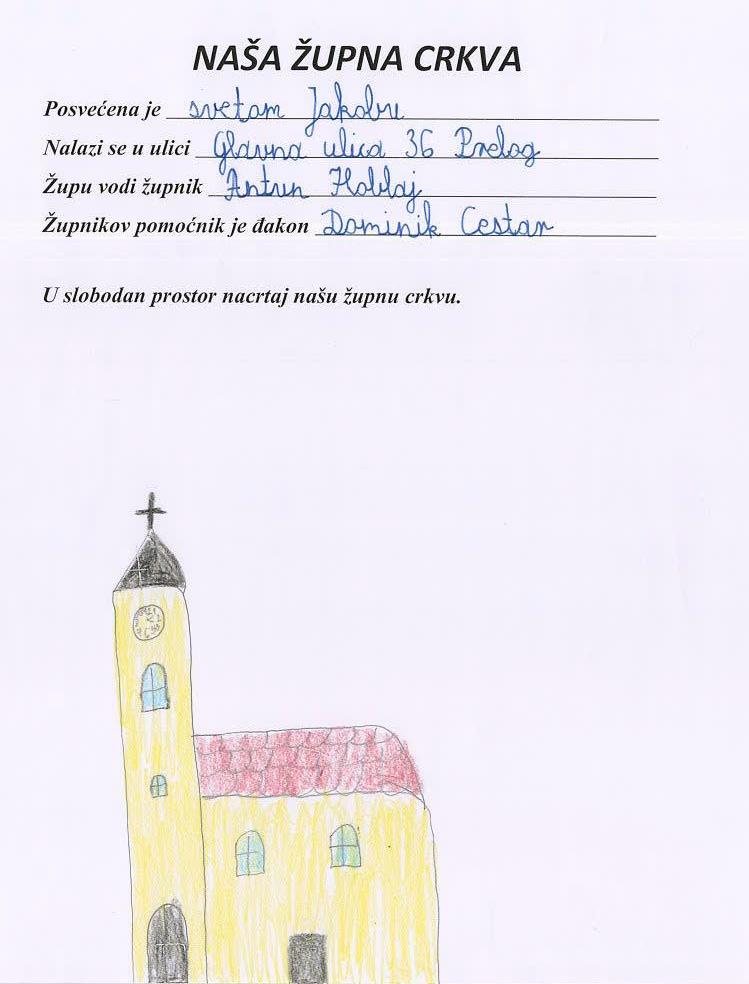 NAŠA ŽUPNA CRKVA
Posvećena je svetom Jakobu
Nalazi se u ulici Glavna ulica 36 Prelog
Župu vodi župnik Antun Hoblaj
Župnikov pomoćnik je đakon Dominik Cestar
U slobodan prostor nacrtaj našu župnu crkvu.